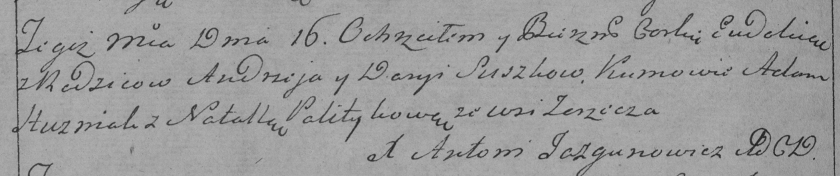 Tegiż Mca Dnia 16. Ochrzciłem y Bierzm Corkę Eudokiau
z Rodzicow Andrzeja y Daryi Suszkow. Kumowie Adam
Kuzmiak z Natalką Palitykową ze wsi Zarzecza
X Antoni Jazgunowicz